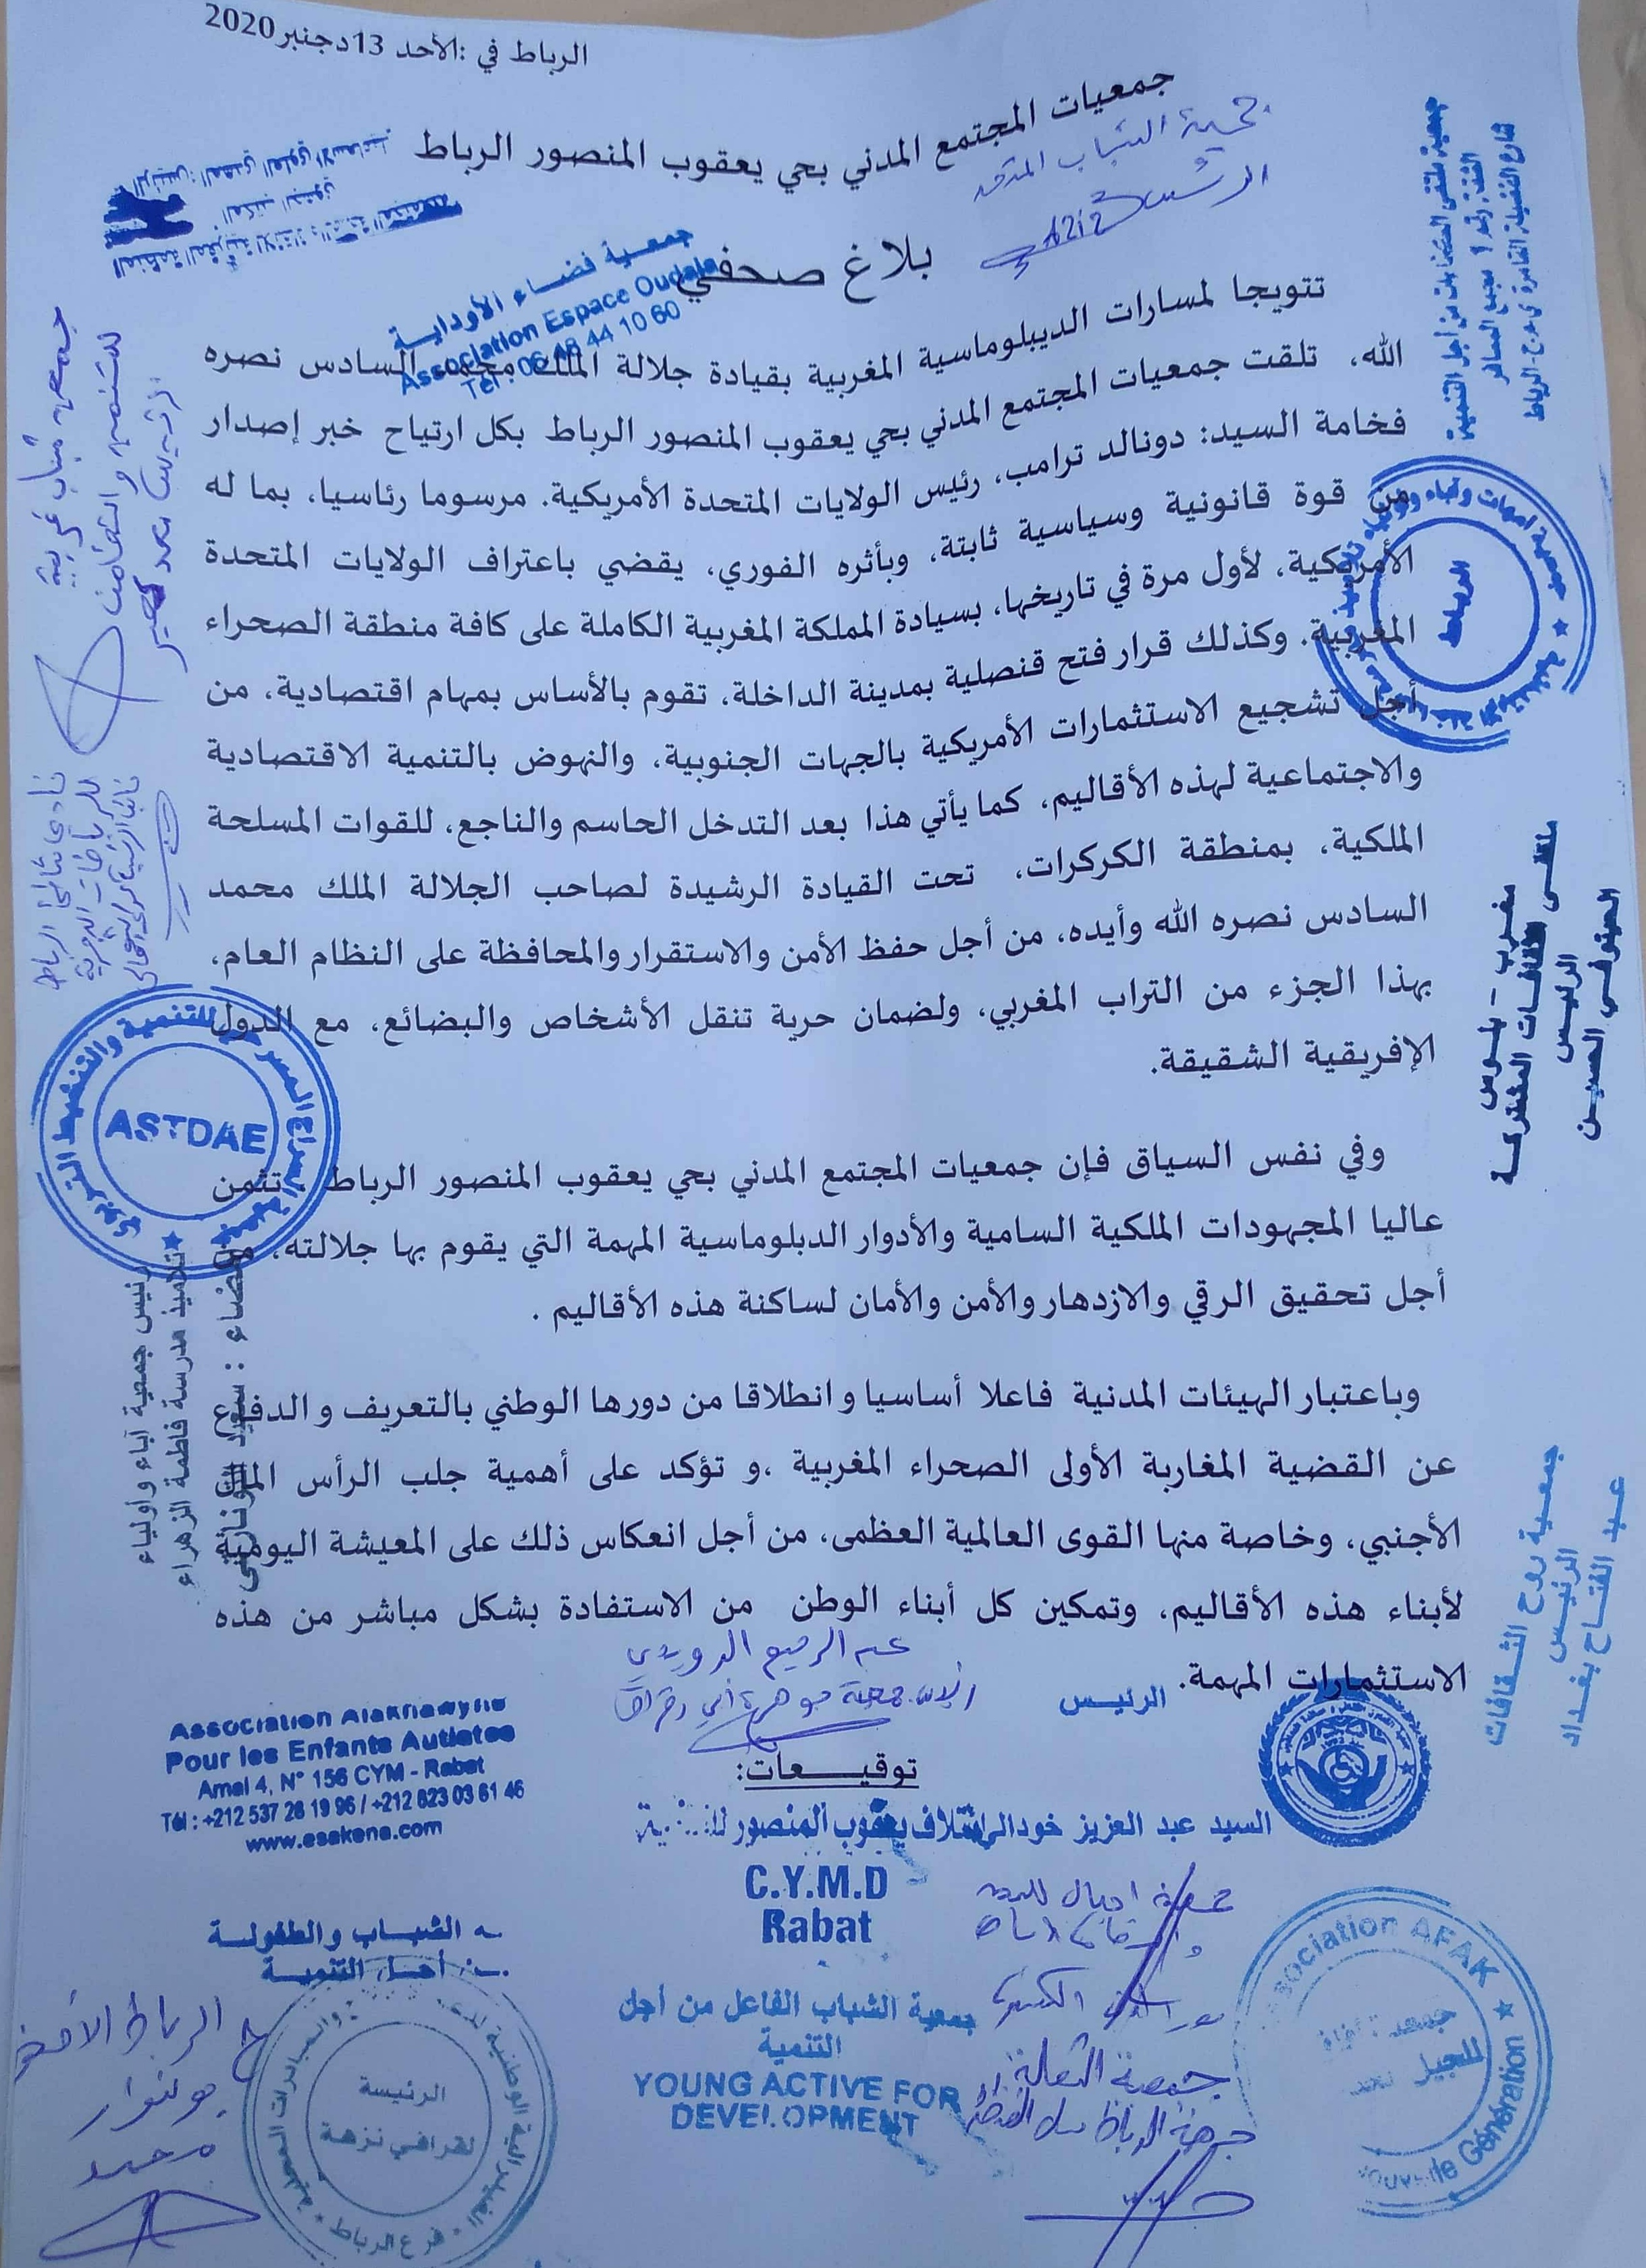 الرباط في :الأحد 13دجنبر2020
جمعيات المجتمع المدني بحي يعقوب المنصور الرباط
جمعية الشباب المتحد
الرئيس
بلاغ صحفي
جمعية فضاء الأوداية
Association Espace Oudaia
Tél : 06 48 44 10 60
تتويجا لمسارات الديبلوماسية المغربية بقيادة جلالة الملك محمد السادس نصره
الله، تلقت جمعيات المجتمع المدني بحي يعقوب المنصور الرباط بكل ارتياح خبر إصدار
فخامة السيد: دونالد ترامب، رئيس الولايات المتحدة الأمريكية. مرسوما رئاسيا، بما له
من قوة قانونية وسياسية ثابتة، وبأثره الفوري، يقضي باعتراف الولايات المتحدة
الأمريكية، لأول مرة في تاريخها، بسيادة المملكة المغربية الكاملة على كافة منطقة الصحراء
المغربية. وكذلك قرار فتح قنصلية بمدينة الداخلة، تقوم بالأساس بمهام اقتصادية، من
أجل تشجيع الاستثمارات الأمريكية بالجهات الجنوبية، والنهوض بالتنمية الاقتصادية
والاجتماعية لهذه الأقاليم، كما يأتي هذا بعد التدخل الحاسم والناجع، للقوات المسلحة
الملكية، بمنطقة الكركرات، تحت القيادة الرشيدة لصاحب الجلالة الملك محمد
السادس نصره الله وأيده، من أجل حفظ الأمن والاستقرار والمحافظة على النظام العام،
بهذا الجزء من التراب المغربي، ولضمان حرية تنقل الأشخاص والبضائع، مع الدول
الإفريقية الشقيقة.
وفي نفس السياق فإن جمعيات المجتمع المدني بحي يعقوب المنصور الرباط تثمن
عاليا المجهودات الملكية السامية والأدوار الدبلوماسية المهمة التي يقوم بها جلالته، من
أجل تحقيق الرقي والازدهار والأمن والأمان لساكنة هذه الأقاليم .
وباعتبار الهيئات المدنية فاعلا أساسيا وانطلاقا من دورها الوطني بالتعريف و الدفاع
عن القضية المغاربة الأولى الصحراء المغربية ،و تؤكد على أهمية جلب الرأس المال
الأجنبي، وخاصة منها القوى العالمية العظمى، من أجل انعكاس ذلك على المعيشة اليومية
لأبناء هذه الأقاليم، وتمكين كل أبناء الوطن من الاستفادة بشكل مباشر من هذه
الاستثمارات المهمة.
الرئيس
توقيعات:
السيد عبد العزيز خودالي
ائتلاف يعقوب المنصور للتنمية
C.Y.M.D
Rabat
Association Alakhawayne
Pour les Enfants Autistes
Amal 4, N° 156 CYM - Rabat
Tél : +212 537 28 19 96 / +212 623 03 61 46
www.esakena.com
الشباب والطفولة
من أجل التنمية
جمعية الشباب الفاعل من أجل
التنمية
YOUNG ACTIVE FOR
DEVELOPMENT
الرئيسة
نزهة
فرع الرباط
Association AFAK
Nouvelle Génération
ASTDAE
رئيس جمعية آباء وأولياء
تلاميذ مدرسة فاطمة الزهراء
الرباط
مغرب - بلوس
ملتقى الثقافات المشتركة
الرئيس
جمعية روح الثقافات
الرئيس
عبد الفتاح بغداد